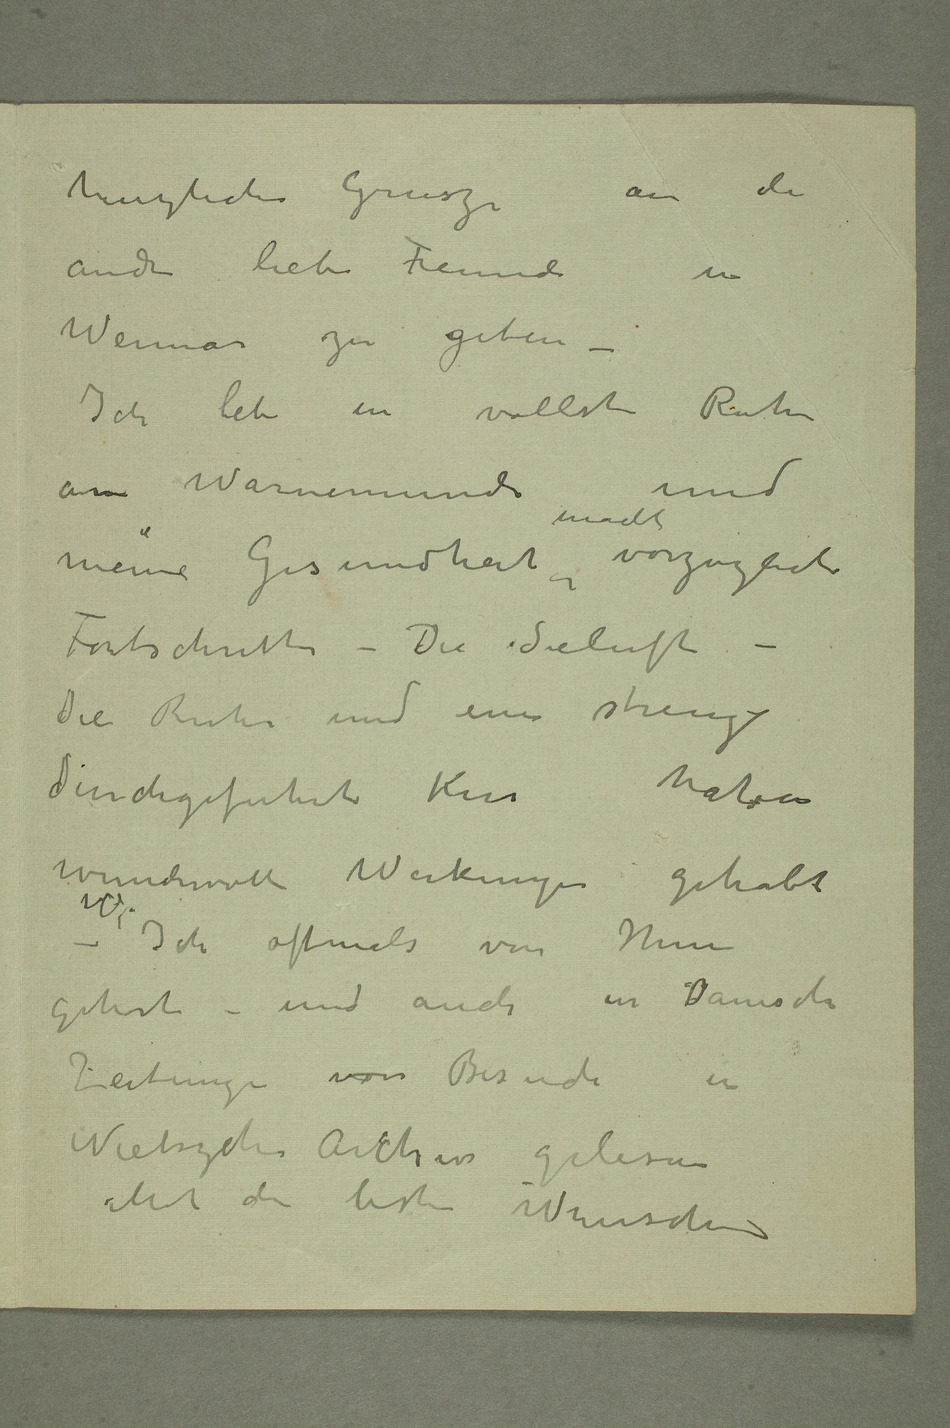 herzliche Grusze an die
andre liebe Freunde in
Weimar zu geben –
Ich lebe in vollste Ruhe
am Warnemunde und
meine Gesundheit macht vorzugliche
Fortschritte – Die Seeluft –
die Ruhe und eine strenge
durchgefuhrte Kur haben
wundervolle Werkungen gehabt
– Ich oftmals von Ihnen
gehort – und auch in Danische
Zeitunge von Besuche in
Nietszche Archiv gelesen
Mit die beste Wunschen